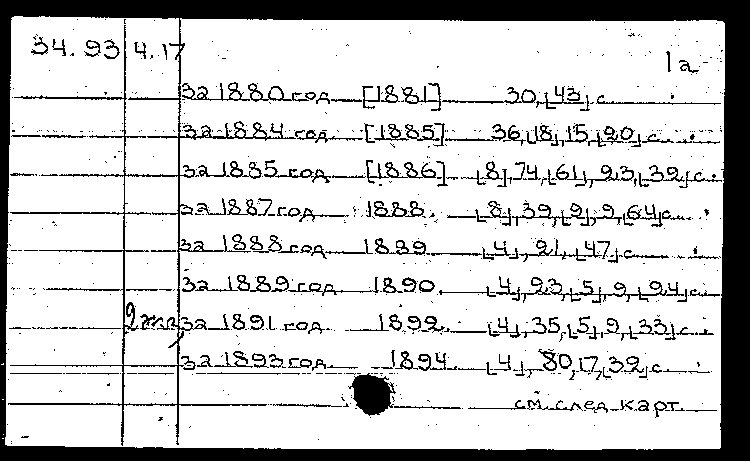 34.93 4.17
1а
за 1880 год [1881] 30,[43] с.
за 1884 год [1885] 36,[18],15,[20] с.
за 1885 год [1886] [8],74,[61],23,[32] с.
за 1887 год 1888. [8],39,[9],9,[64] с.
за 1888 год 1889. [4],21,[47] с.
за 1889 год 1890. [4],23,[5],9,[24] с.
2 экз за 1891 год 1892. [4],35,[5],9,[33] с.
за 1893 год 1894. [4],80,17,[32] с.
см. след. карт.